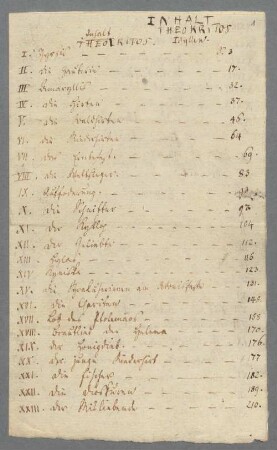 INHALT
Inhalt THEOKRITOS
THEOKRITOS. Idyllen.
I. Thyrsis — — — S. 3
II. die Zauberin — — — 17.
III. Amaryllis — — — 32.
IV. die Hirten — — — 37.
V. die Waldhirten — — — 45
VI. die Rinderhirten — — — 64
VII. — — — 69.
VIII. die Wettsänger — — — 83
IX. — — — 93
X. die Schnitter — — — 98
XI. der Kyklop — — — 104
XII. der Geliebte — — — 112.
XIII. Hylas — — — 116
XIV. Kyniska — — — 123.
XV. die Syrakuserinnen am Adonisfeste — 131.
XVI. die Chariten — — — 145.
XVII. Lob des Ptolemäos — — — 155
XVIII. Brautlied der Helena — — — 170.
XIX. der Honigdieb — — — 176
XX. der junge Rinderhirt — — — 177
XXI. die Fischer — — — 182.
XXII. die Dioskuren — — — 189.
XXIII. der — — — 210.